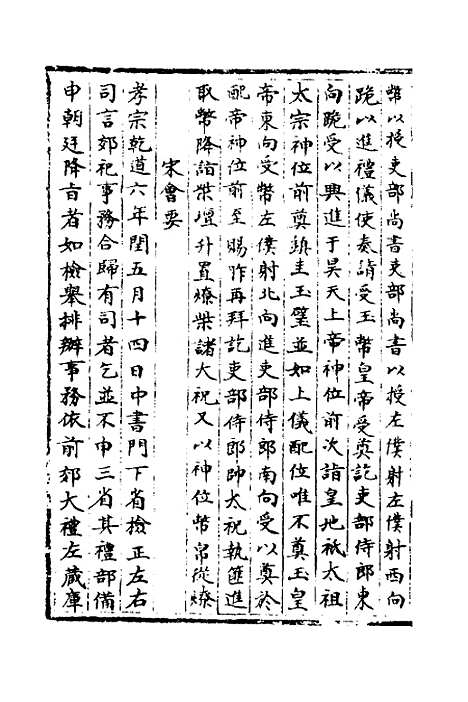 幣以授吏部尚書吏部尚書以授左僕射左僕射西向
跪以進禮儀使奏請受玉幣皇帝受奠訖吏部侍郎東
向跪受以興進于昊天上帝神位前次詣皇地祇太祖
太宗神位前奠鎮圭玉璧並如上儀配位唯不奠玉皇
帝東向受幣左僕射北向進吏部侍郎南向受以奠於
配帝神位前至賜胙再拜訖吏部侍郎帥太祝執匪進
取幣降詣柴壇升置燎柴諸大祝又以神位幣帛從燎
宋會要
孝宗乾道六年閏五月十四日中書門下省檢正左右
司言郊祀事務合歸有司者乞並不申三省其禮部備
申朝廷降㫖者如檢舉排辦事務依前郊大禮左藏庫